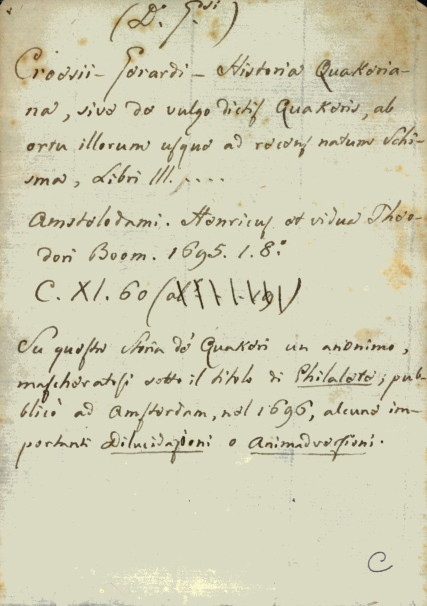 (D. G.si)
Croesii - Gerardi - Historia Quakeria-
na, sive de vulgo dictis Quakeris, ab
ortu illorum usque ad recens natum Schi-
sma, Libri III. ....
Amstelodami. Henricus et vidua Theo-
dori Boom. 1695. 1. 8.°
C. XI. 60
Su questa Storia de' Quakeri un anonimo,
mascheratosi sotto il titolo di Philalete, pub-
blicò ad Amsterdam, nel 1696, alcune im-
portanti Dilucidazioni o Animadversioni.
C